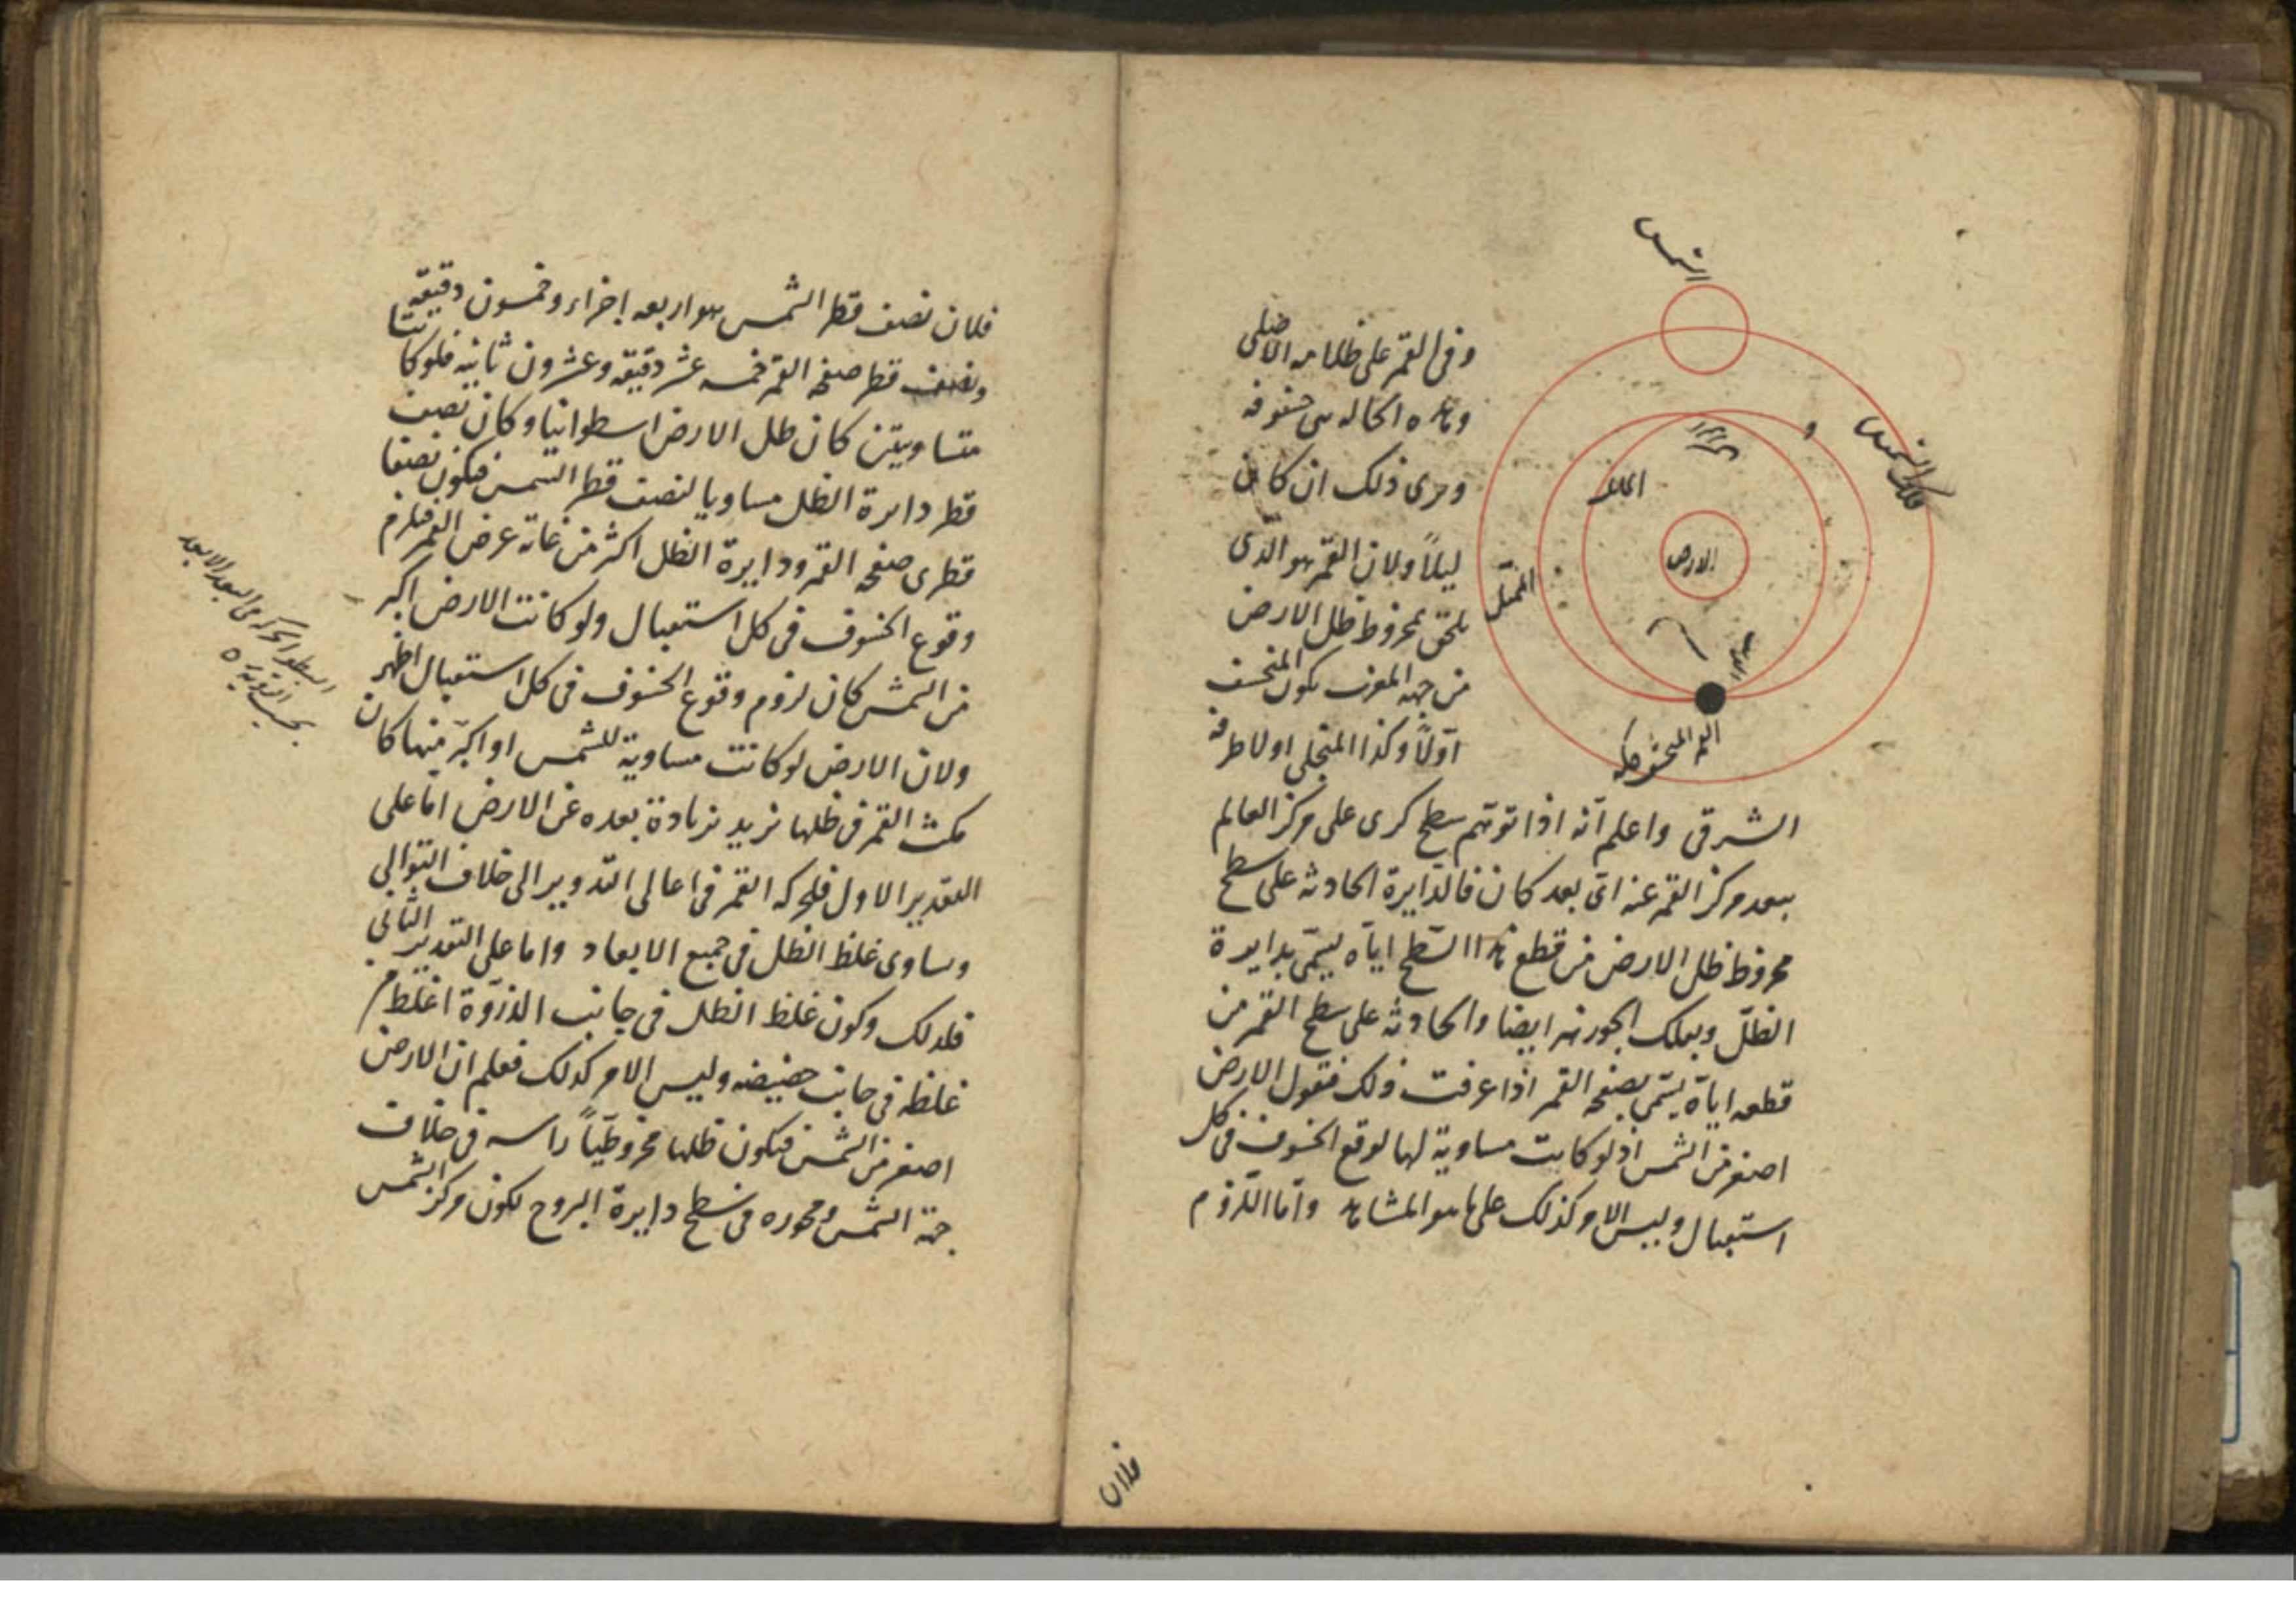 الشمس
فلك الشمس
المائل
الارض
الممثل
القمر المنخسف كله
وبقى القمر على ظلامه الاصلى
وهذه الحاله هى خسوفه
ويرى ذلك ان كان
ليلاً ولان القمر هو الذى
يلحق بمخروط ظل الارض
من جهه المغرب يكون المنخسف
اوّلاً وكذا المنجلى اولا طرفه
الشرقى واعلم انّه اذا توهّم سطح كرى على مركز العالم
ببعد مركز القمر عنه اىّ بعد كان فالدّايرة الحادثه على سطح
مخروط ظل الارض من قطع هذا السّطح ايّاه يسمّى بدايرة
الظلّ وبفلك الجوزهر ايضا والحادثه على سطح القمر من
قطعه ايّاه يسمّى بصفحه القمر اذا عرفت ذلك فنقول الارض
اصغر من الشمس اذ لو كانت مساوية لها لوقع الخسوف فى كل
استقبال وليس الامر كذلك على ما هو المشاهد وامّا اللّزوم
فلان
فلان نصف قطر الشمس هو اربعه اجزاء وخمسون دقيقه
ونصف قطر صفحه القمر خمسه عشر دقيقه وعشرون ثانيه فلو كانتا
متساويتين كان ظل الارض اسطوانيا وكان نصف
قطر دايرة الظل مساويا لنصف قطر الشمس فيكون نصفا
قطرى صفحه القمر ودايرة الظل اكثر من غاية عرض القمر فيلزم
وقوع الخسوف فى كل استقبال ولو كانت الارض اكبر
من الشمس كان لزوم وقوع الخسوف فى كل استقبال اظهر
ولان الارض لو كانت مساوية للشمس او اكبر منها كان
مكث القمر فى ظلها يزيد بزيادة بعده عن الارض امّا على
التقدير الاول فلحركه القمر فى اعالى التّدوير الى خلاف التّوالى
وتساوى غلظ الظل فى جميع الابعاد واما على التقدير الثانى
فلذلك وكون غلظ الظل فى جانب الذروّة اغلظ من
غلظه فى جانب حضيضه وليس الامر كذلك فعلم ان الارض
اصغر من الشمس فيكون ظلها مخروطيّاً راسه فى خلاف
جهة الشمس ومحوره فى سطح دايرة البروج لكون مركز الشمس